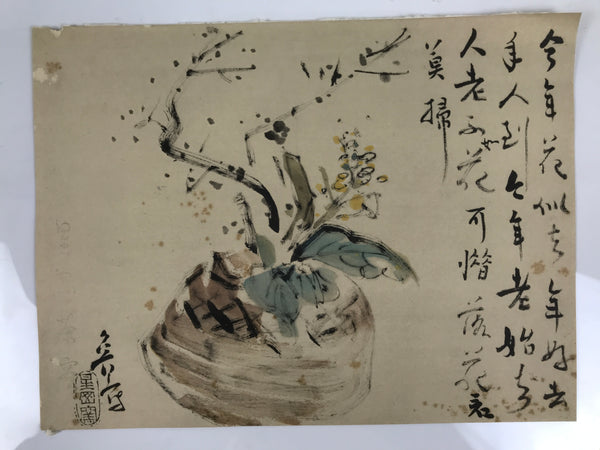 今年花似去年好去
年人到今年老始知
人老不如花可惜落花君
莫掃
星岡窯